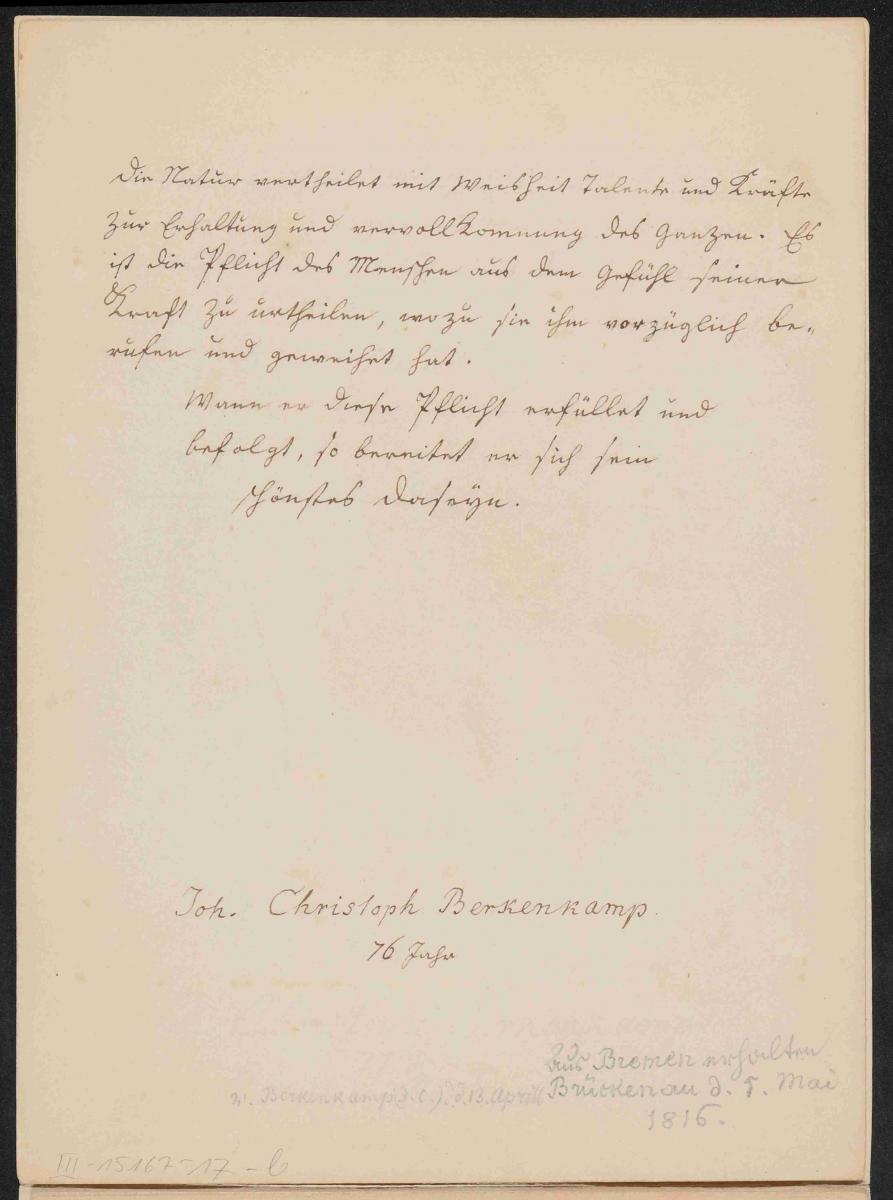 Die Natur vertheilet mit Weisheit Talente und Kräfte
zur Erhaltung und vervollkomnung des Ganzen. Es
ist die Pflicht des Menschen aus dem Gefühl seiner
Kraft zu urtheilen, wozu sie ihm vorzüglich be„
rufen und geweihet hat.
Wann er diese Pflicht erfüllet und
befolgt, so bereitet er sich sein
schönstes Daseyn.
Joh. Christoph Berkenkamp.
76 Jahr
aus Bremen erhalten
v. Berkenkamp (J. C.) d. 13. April Brückenau d. 5. Mai
1816.
III-15167-17-b